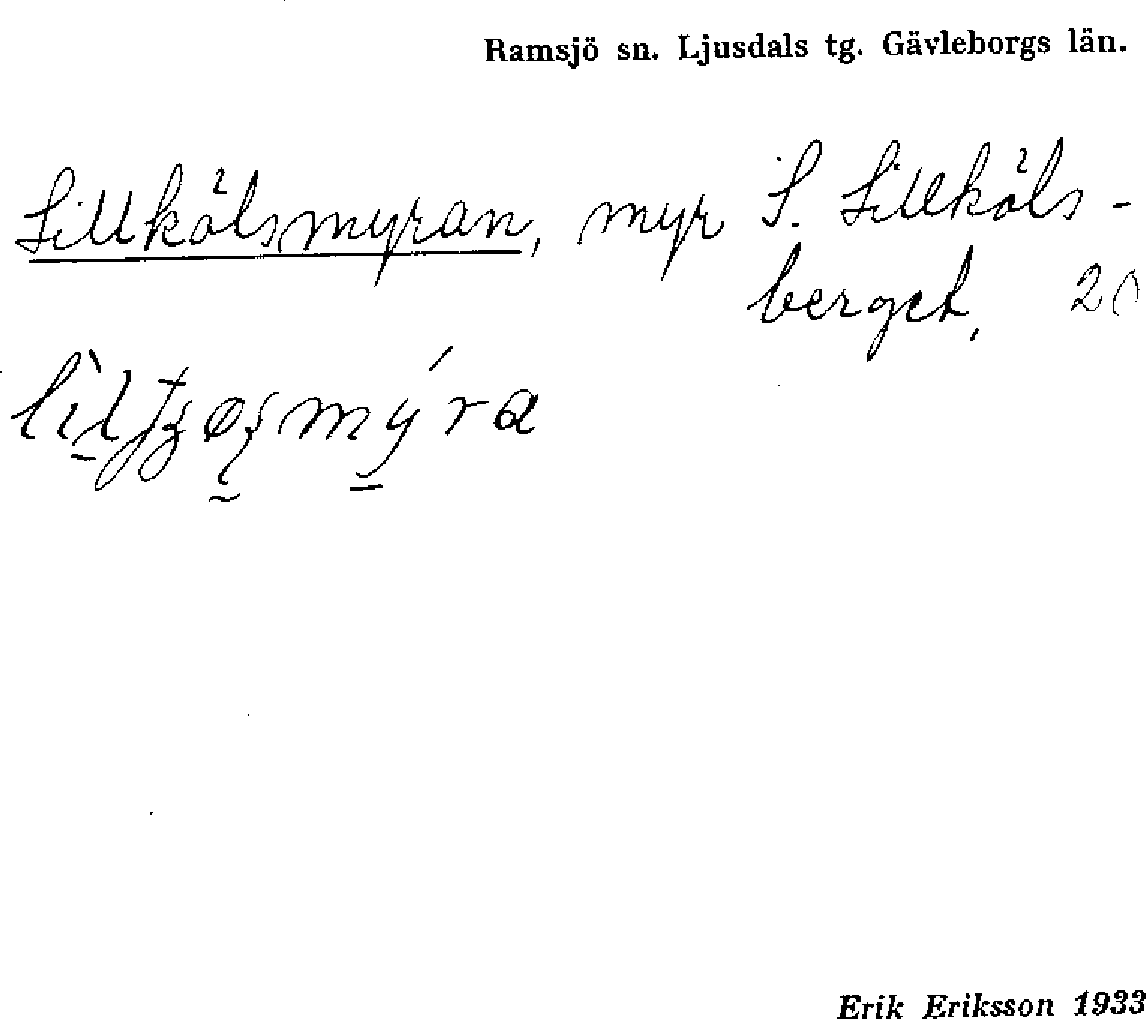 Ramsjö sn. Ljusdals tg. Gävleborgs län.
Lillkölsmyran, myr S. Lillköls-
berget, 20
Erik Eriksson 1933